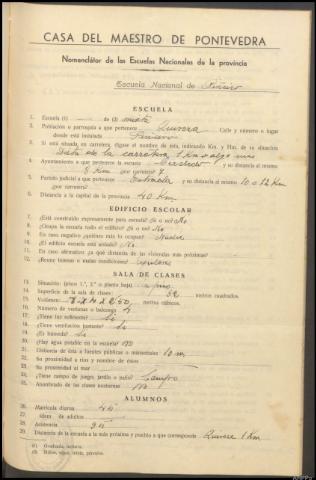 CASA DEL MAESTRO DE PONTEVEDRA
Nomenclátor de las Escuelas Nacionales de la provincia
Escuela Nacional de Piñeiro
ESCUELA
1. Escuela (1) de (2) mixta
2. Población o parroquia a que pertenece Calle y número o lugar
donde está instalada Piñeiro
3. Si está situada en carretera, dígase el nombre de ésta, indicando Km. y Hm. de su situación
Dista de la carretera 1 Km
4. Ayuntamiento a que pertenece la escuela y su distancia al mismo
5 Km por carretera
5. Partido judicial a que pertenece Estrada y su distancia al mismo 10 o 12 Km
por carretera
6. Distancia a la capital de la provincia 40 Km
EDIFICIO ESCOLAR
7. ¿Está construído expresamente para escuela? (Sí o no) No
8. ¿Ocupa la escuela todo el edificio? (Sí o no) No
9. En caso negativo ¿quiénes más lo ocupan?
10. ¿El edificio escuela está aislado? No
11. En caso afirmativo ¿a qué distancia de las viviendas más próximas?
12. ¿Reune buenas o malas condiciones? regulares
SALA DE CLASES
13. Situación: (piso 1.º, 2.º o planta baja)
14. Superficie de la sala de clases: 32 metros cuadrados.
15. Volúmen: 8 x 4 x 2'50 metros cúbicos.
16. Número de ventanas o balcones 4
17. ¿Tiene luz suficiente? Si
18. ¿Tiene ventilación bastante? Si
19. ¿Es húmeda? Si
20. ¿Hay agua potable en la escuela? no
21. Distancia de ésta a fuentes públicas o manantiales 10 m.
22. Su proximidad a ríos y nombre de éstos
23. Su proximidad al mar
24. ¿Tiene campo de juegos, jardín o patio? Campo
25. Alumbrado de las clases nocturnas no
ALUMNOS
26. Matrícula diurna 45
27. idem. de adultos
28. Asistencia
29. Distancia de la escuela a la más próxima y pueblo a que corresponde 1 Km
(1) Graduada, unitaria.
(2) Niños, niñas, mixta, párvulos.